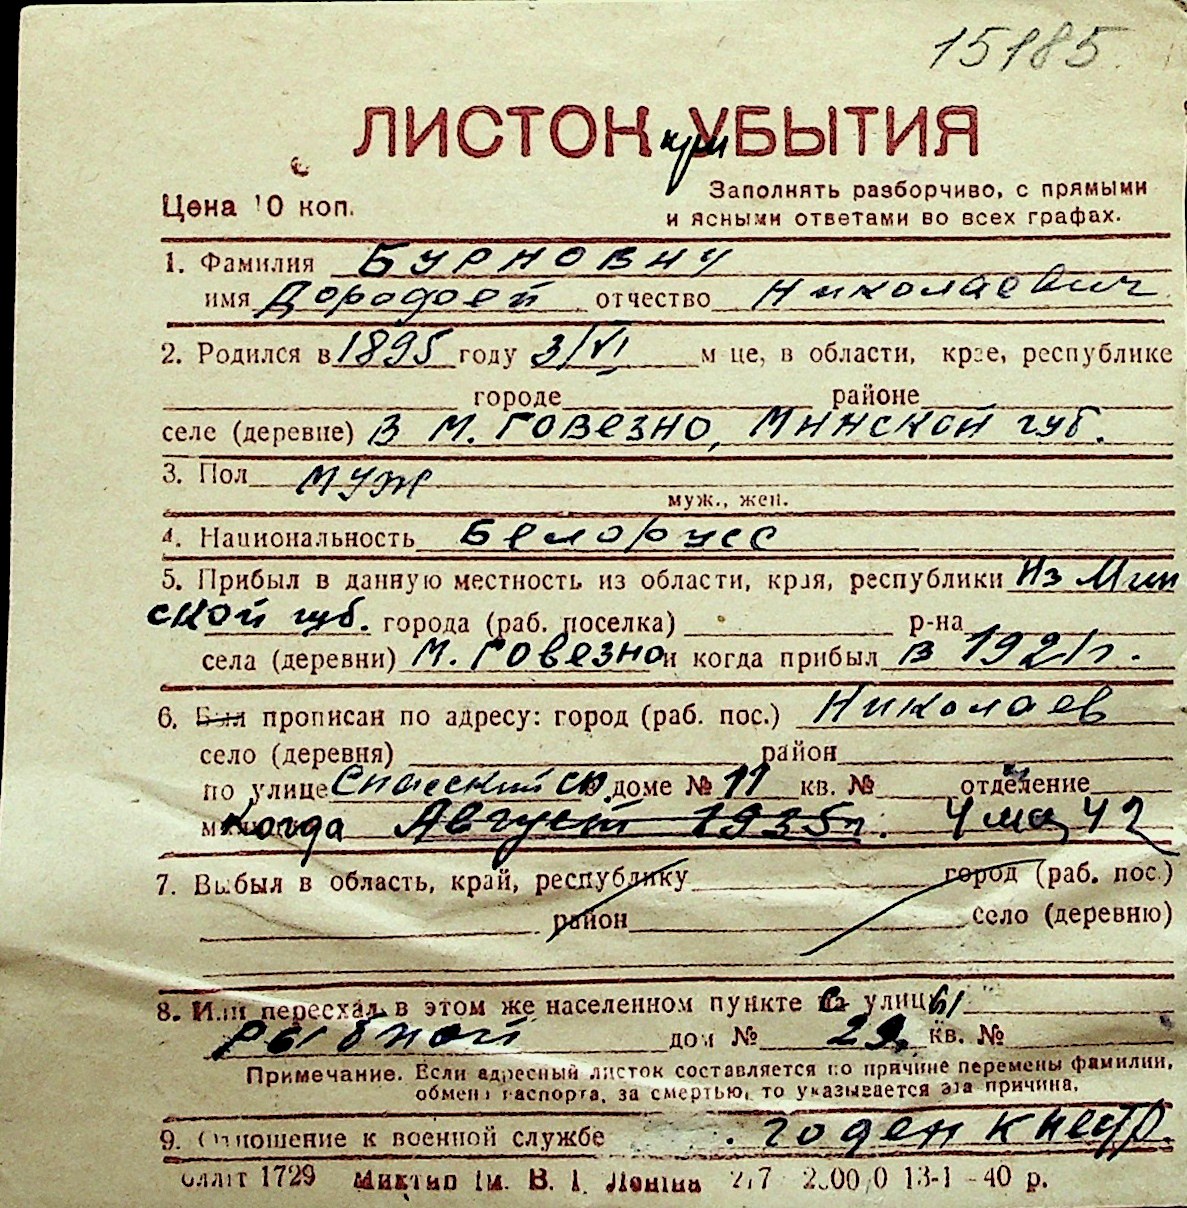 15185.
ЛИСТОК при УБЫТИЯ
Цена 10 коп.
Заполнять разборчиво, с прямыми
и ясными ответами во всех графах.
1. Фамилия Бурнович
имя Дорофей отчество Николаевич
2. Родился в 1895 году 3/VI м-це, в области, крае, республике
городе районе
селе (деревне) в м. Говезно, Минской губ.
3. Пол муж
муж., жен.
4. Национальность Белорусс
5. Прибыл в данную местность из области, края, республики из Мин
ской губ. города (раб. поселка) р-на
села (деревни) м. Говезно и когда прибыл в 1921 г.
6. Был прописан по адресу: город (раб. пос.) Николаев
село (деревня) район
по улице Спасский сп. в доме № 11 кв. № отделение
Когда Август 1935 г. 4 мая 42
7. Выбыл в область, край, республику город (раб. пос.)
район село (деревню)
8. Или переехал в этом же населенном пункте с улицы
Рыбной дом № 29. кв. №
Примечание. Если адресный листок составляется по причине перемены фамилии,
обмена паспорта, за смертью, то указывается эта причина.
9. Отношение к военной службе годен к нестр.
1729 Миктип ім. В. І. Леніна 13-1-40 р.